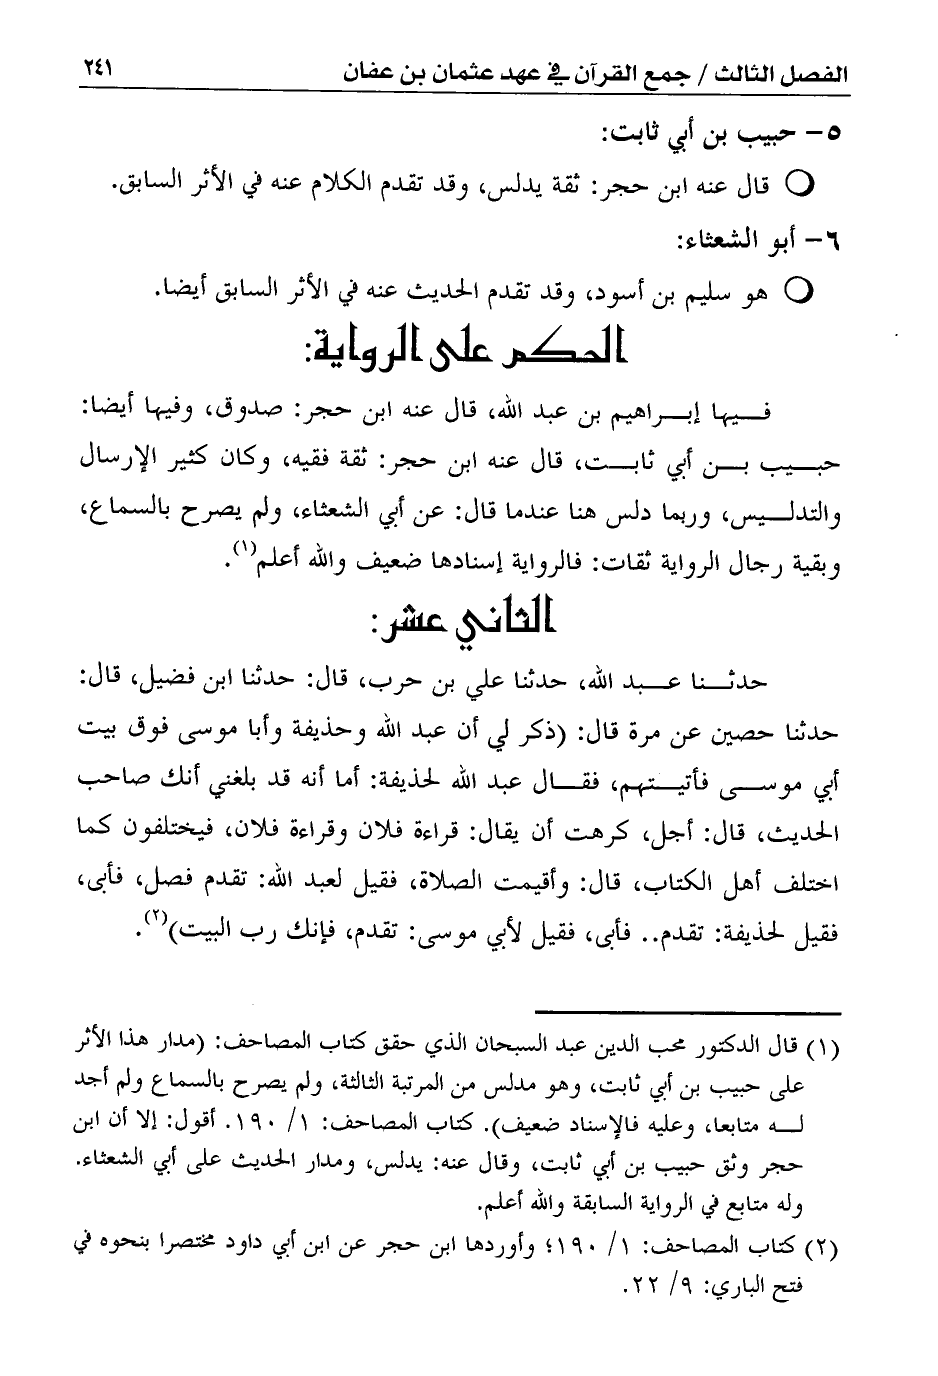 الفصل الثالث / جمع القرآن في عهد عثمان بن عفان ٢٤١
٥- حبيب بن أبي ثابت:
○ قال عنه ابن حجر: ثقة يدلس، وقد تقدم الكلام عنه في الأثر السابق.
٦- أبو الشعثاء:
○ هو سليم بن أسود، وقد تقدم الحديث عنه في الأثر السابق أيضا.
الحكم على الرواية:
فيها إبراهيم بن عبد الله، قال عنه ابن حجر: صدوق، وفيها أيضا:
حبيب بن أبي ثابت، قال عنه ابن حجر: ثقة فقيه، وكان كثير الإرسال
والتدليس، وربما دلس هنا عندما قال: عن أبي الشعثاء، ولم يصرح بالسماع،
وبقية رجال الرواية ثقات: فالرواية إسنادها ضعيف والله أعلم(١).
الثاني عشر:
حدثنا عبد الله، حدثنا علي بن حرب، قال: حدثنا ابن فضيل، قال:
حدثنا حصين عن مرة قال: (ذكر لي أن عبد الله وحذيفة وأبا موسى فوق بيت
أبي موسى فأتيتهم، فقال عبد الله لحذيفة: أما أنه قد بلغني أنك صاحب
الحديث، قال: أجل، كرهت أن يقال: قراءة فلان وقراءة فلان، فيختلفون كما
اختلف أهل الكتاب، قال: وأقيمت الصلاة، فقيل لعبد الله: تقدم فصل، فأبى،
فقيل لحذيفة: تقدم.. فأبى، فقيل لأبي موسى: تقدم، فإنك رب البيت)(٢).
(١) قال الدكتور محب الدين عبد السبحان الذي حقق كتاب المصاحف: (مدار هذا الأثر
على حبيب بن أبي ثابت، وهو مدلس من المرتبة الثالثة، ولم يصرح بالسماع ولم أجد
له متابعا، وعليه فالإسناد ضعيف). كتاب المصاحف: ١/ ١٩٠. أقول: إلا أن ابن
حجر وثق حبيب بن أبي ثابت، وقال عنه: يدلس، ومدار الحديث على أبي الشعثاء.
وله متابع في الرواية السابقة والله أعلم.
(٢) كتاب المصاحف: ١/ ١٩٠؛ وأوردها ابن حجر عن ابن أبي داود مختصرا بنحوه في
فتح الباري: ٩/ ٢٢.